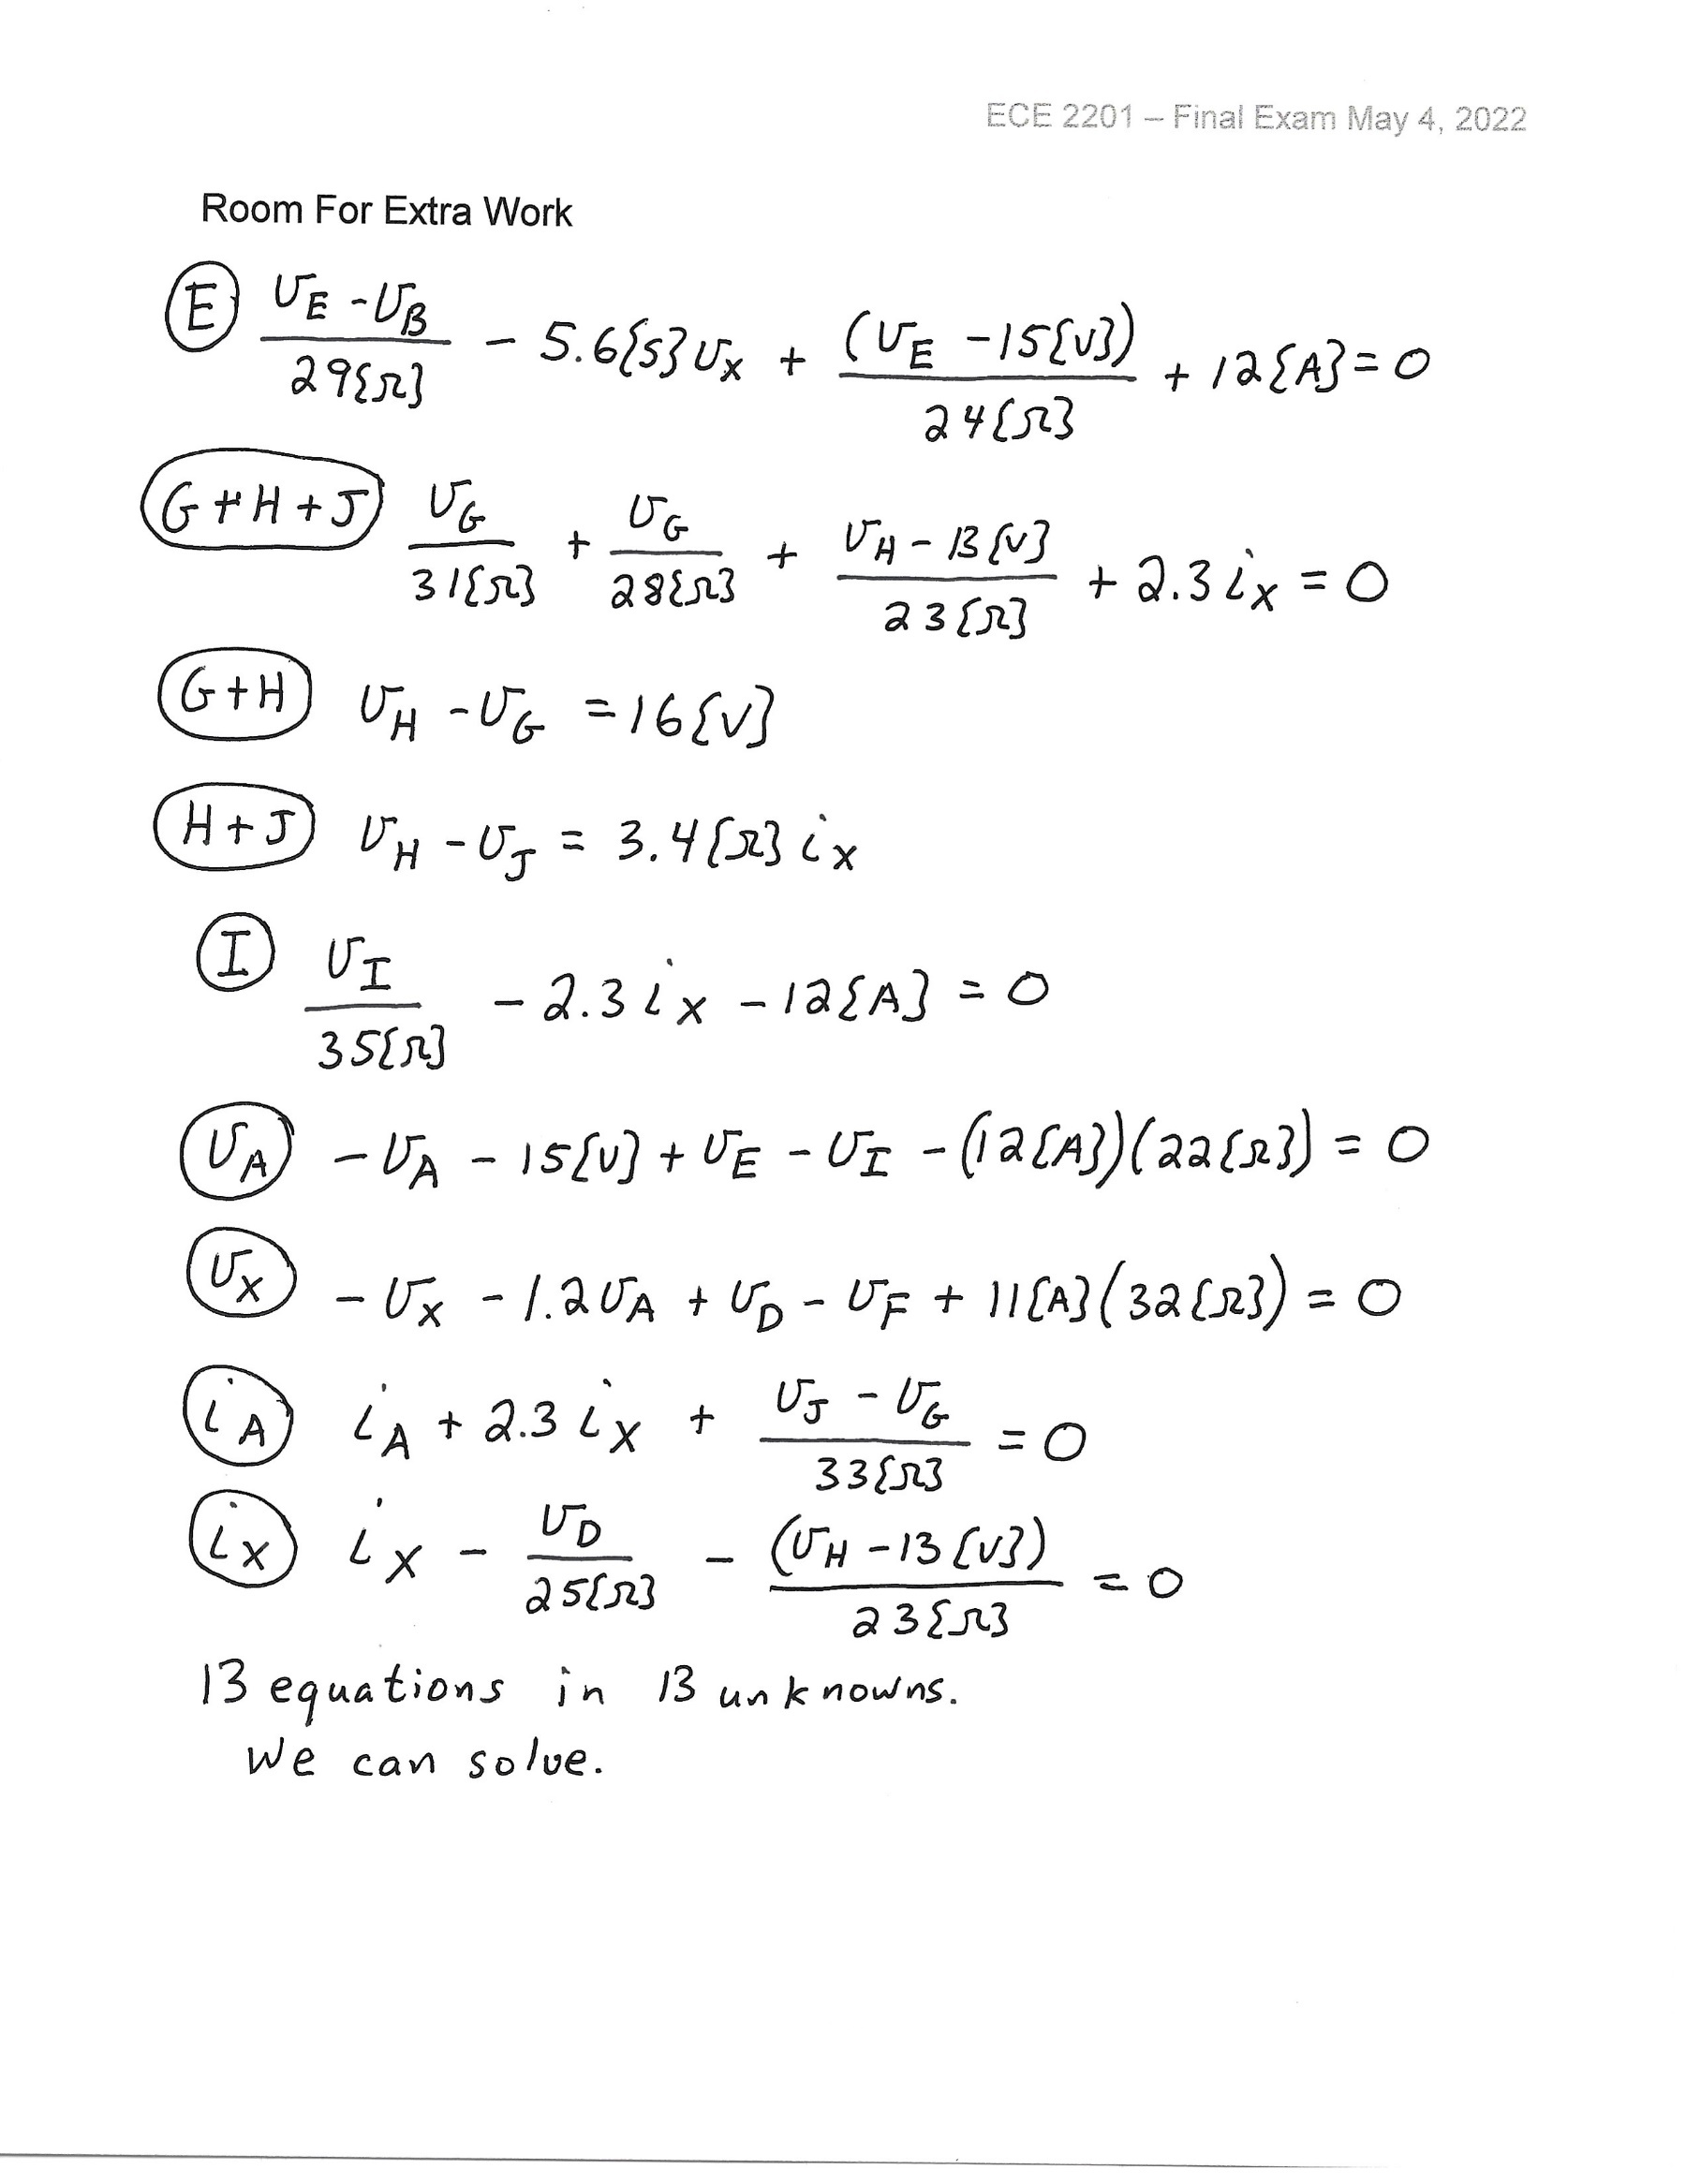 ECE 2201 – Final Exam May 4, 2022
Room For Extra Work
(E) (v_E - v_B)/29{Ω} - 5.6{S}v_X + (v_E - 15{V})/24{Ω} + 12{A} = 0
(G+H+J) v_G/31{Ω} + v_G/28{Ω} + (v_H - 13{V})/23{Ω} + 2.3 i_X = 0
(G+H) v_H - v_G = 16{V}
(H+J) v_H - v_J = 3.4{Ω} i_X
(I) v_I/35{Ω} - 2.3 i_X - 12{A} = 0
(v_A) -v_A - 15{V} + v_E - v_I - (12{A})(22{Ω}) = 0
(v_X) -v_X - 1.2v_A + v_D - v_F + 11{A}(32{Ω}) = 0
(i_A) i_A + 2.3 i_X + (v_J - v_G)/33{Ω} = 0
(i_X) i_X - v_D/25{Ω} - (v_H - 13{V})/23{Ω} = 0
13 equations in 13 unknowns.
We can solve.